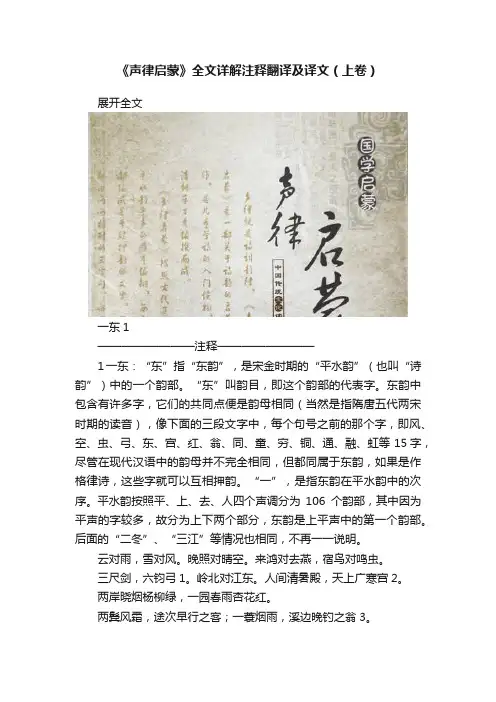 《声律启蒙》全文详解注释翻译及译文（上卷）
展开全文
国学启蒙
声律
启蒙
一东1
————————注释————————
1一东：“东”指“东韵”，是宋金时期的“平水韵”（也叫“诗
韵”）中的一个韵部。“东”叫韵目，即这个韵部的代表字。东韵中
包含有许多字，它们的共同点便是韵母相同（当然是指隋唐五代两宋
时期的读音），像下面的三段文字中，每个句号之前的那个字，即风、
空、虫、弓、东、宫、红、翁、同、童、穷、铜、通、融、虹等15字，
尽管在现代汉语中的韵母并不完全相同，但都同属于东韵，如果是作
格律诗，这些字就可以互相押韵。“一”，是指东韵在平水韵中的次
序。平水韵按照平、上、去、人四个声调分为106个韵部，其中因为
平声的字较多，故分为上下两个部分，东韵是上平声中的第一个韵部。
后面的“二冬”、“三江”等情况也相同，不再一一说明。
云对雨，雪对风。晚照对晴空。来鸿对去燕，宿鸟对鸣虫。
三尺剑，六钧弓1。岭北对江东。人间清暑殿，天上广寒宫2。
两岸晓烟杨柳绿，一园春雨杏花红。
两鬓风霜，途次早行之客；一蓑烟雨，溪边晚钓之翁3。